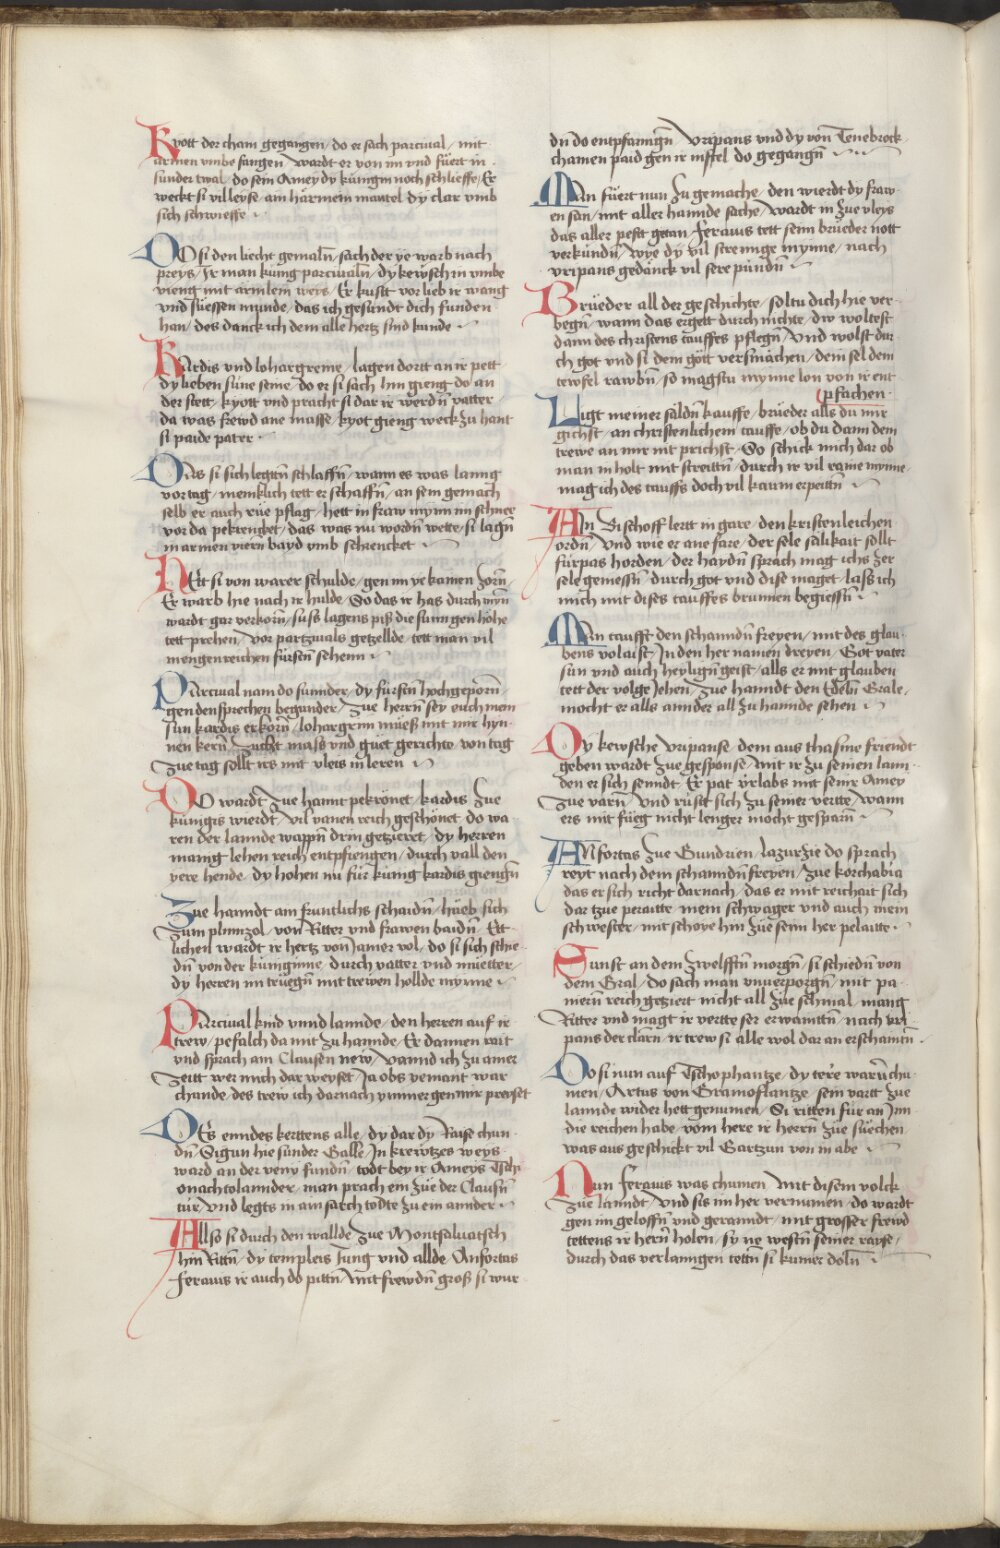 Kyott der cham gegangen / do er sach parcival / mit
armen vmbe fangen / Wardt er von im vnd fuert in
sunder twal / do sein Amey dy kunigin noch schlieffe / Er
weckt si vil leyse / am härmein mantel dy clar vmb
sich schwieffe
DO si den liecht gemaln / sach der ye warb nach
preys / Ir man kunig parcivaln / dy kewsch in vmbe
vieng mit armlein weys / Er kust vor lieb ir wang
vnd süessen munde / das ich gesundt dich funden
han / des danck ich dem alle hertz sind kunde
Kardis vnd lohargreine / lagen dortt an ir pett
dy lieben süne seine / do er si sach Inn gieng do an
der stett / kyott vnd pracht si dar ir werdn vatter
da was frewd ane masse / kyot gieng weck zu hant
si paide pater
DOas si sich legttn schlaffn / wann es was lanng
vor tag / menklich tett er schaffn / an sein gemach
selb er auch rue pflag / hett in fraw mynn im schnee
vor da pekrengket / das was nu wordn wette / si lagn
in armen viern bayd vmb schrencket
HEtt si von warer schulde / gen im ye kamen zorn /
Er warb hie nach ir hulde / So das ir has durch myn
wardt gar verkorn / suss lagens piß die sunn gen höhe
tett prehen / vor partzivals getzellde / tett man vil
mengen reichen fürstn sehenn
PArcival nam do sunnder / dy fürstn hochgeporn
gen den sprechen begunder / zue herrn sey euch mein
sun kardis erkorn / lohargrin mueß mit mir hyn
nen kern / zucht mass vnd guet gerichte / von tag
zue tag sollt irs mit vleis in leren
DO wardt zue hannt pekrönet / kardis zue
kunigs wierdt / vil vanen reich geschönet / do wa
ren der lannde wappn drin getzieret / dy herren
manig lehen reich entpfiengen / durch vall den
yere hende / dy hohen nu für kunig kardis giengn
Zue hanndt am fruntlichs schaidn / hueb sich
zum plimizol / von Ritter vnd frawen baidn / Ett
lichen wardt ir hertz von Jamer vol / do si sich schie
dn von der kuniginne / durch vatter vnd muetter /
dy herren im truegn mit trewen hollde mynne
PArcival kind vnnd lannde / den herren auf ir
trew / pefalch da mit zu hannde / Er dannen rait
vnd sprach am Clausen new / vannd ich zu amer
zeitt wer mich dar weyset / Ja obs yemant war
chande / des trew ich darnach ymmer gen mir preyset
DEs enndes kerttens alle / dy dar dy Raise chun
dn / Sigun hie sunder Galle / In krewtzes weys
ward an der veny fundn / todt bey ir Ameys Tschi
onachtolannder / man prach ein zue der Clausn
tür / vnd legts in ain sarch todte zu ein annder
Allso si durch den wallde zue Montsaluatsch
hin Rittn / dy templeis Jung vnd allde / Anfortas
feravis ir auch do pittn / Mit frewdn groß si wur
dn do entpfanngn / vripans vnd dy von Tenebrock
chamen paid gen ir mstel do gegangn
MAn fuert nun zu gemache / den wierdt dy fraw
en san / mit aller hannde sache / wardt in zue vleys
das aller pest getan / feravis tett seim brueder nott
verkündn / wye dy vil strennge mynne / nach
vripans gedanck vil sere pundn
Brueder all der geschichte / soltu dich hie ver
begn / wann das ergett durch nichte / dw woltest
dann des christens tauffes pflegn / Vnd wolst dur
ch got vnd si dem gott versmächen / dein sel dem
tewfel rawbn / so magstu mynne lon von ir ent
pfachen
LIgt meiner säldn kauffe / brueder alls du mir
gichst / an christenlichem tauffe / ob du dann dem
trewe an mir nit prichst / So schick mich dar ob
man in holt mit streittn / durch ir vil raine mynne
mag ich des tauffs doch vil kaum erpeittn
AIn Bischoff lertt in gare / den kristenleichen
ordn / Vnd wie er ane fare / der sele sälikait sollt
fürpas horden / der haydn sprach mag ichs zer
sele geniessn / durch got vnd dise maget / lass ich
mich mit dises tauffes brunnen begiessn
MAn taufft den schanndn freyen / mit des glau
bens volaist / In den her namen dreyen / Got vater
sun vnd auch heylign geist / alls er mit glauben
tett der volge Jehen / zue hanndt den Edeln Grale /
mocht er alls annder all zu hannde sehen
DY kewsche vripanse / dem aus thasme friendt
geben wardt zue gesponse / Mit ir zu seinen lann
den er sich senndt / Er pat vrlabs mit seinr Amey
zue varn / Vnd rüst sich zu seiner vertte / wann
ers mit fueg nicht lenger mocht gesparn
ANfortas zue Gundrien / lazurzie do sprach
reyt nach dem schanndn freyen / zue korchabia
das er sich richt darnach / das er mit reichait sich
dar tzue peraitte / mein schwager vnd auch mein
schwester / mit schoye hin zue seim her pelaitte
Sunst an dem zwelfftn morgn / si schiedn von
dem Gral / do sach man vnverporgn / mit pa
niern reich getziert nicht all zue schmal / manig
Ritter vnd magt ir vertte ser erwanttn / nach vri
pans der clarn / ir trew si alle wol dar an erschaintn
DO si nun auf Tschophantze / dy tere warn chu
men / Artus von Gramoflantze / sein vartt zue
lannde wider hett genumen / Si ritten für an Im
die reichen habe / vom here ir herrn zue suechen
was aus geschickt vil Gartzun von in abe
Nun feravis was chumen / Mit disem volck
zue lanndt / Vnd sis im her vernumen / do wardt
gen im geloffn vnd geranndt / mit grosser frewd
tettens ir hern holen / sy ne westn seiner rayse /
durch das verlanngen tettn si kumer doln